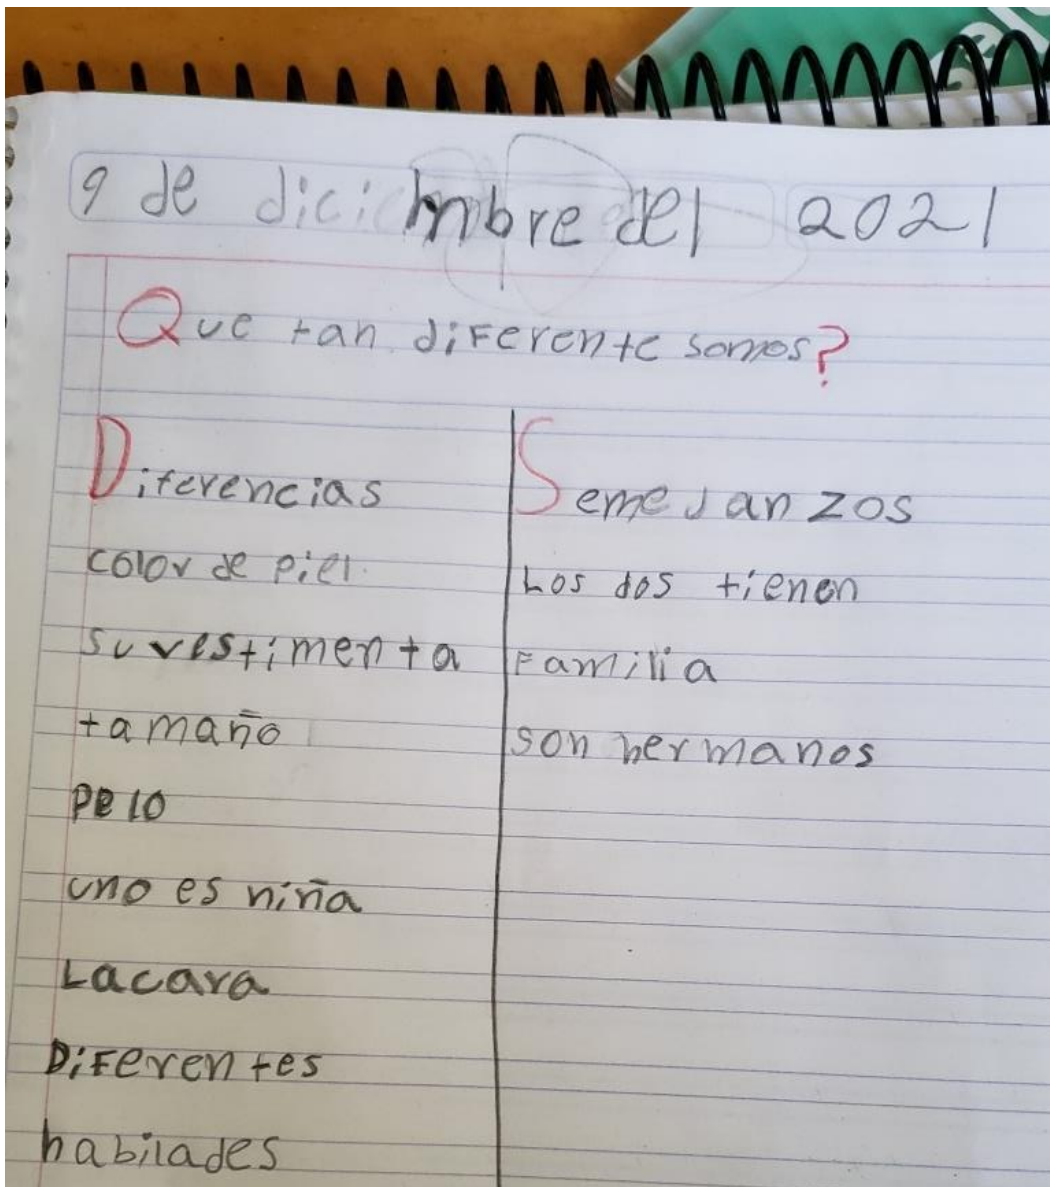 9 de diciembre del 2021
Que tan diferente somos?
Diferencias
color de piel
su vestimenta
tamaño
pelo
uno es niña
La cara
Diferentes
habilades
Semejanzos
Los dos tienen
Familia
son hermanos